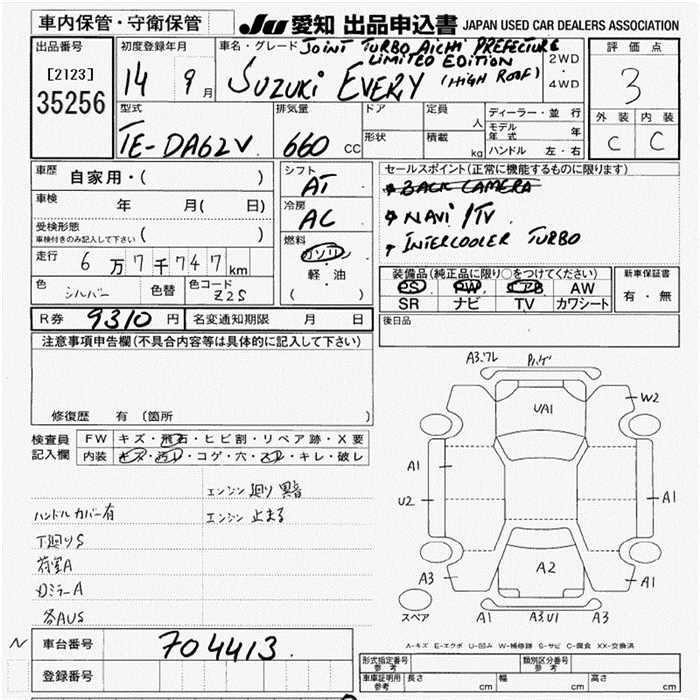 車内保管・守衛保管
JU 愛知 出品申込書 JAPAN USED CAR DEALERS ASSOCIATION
出品番号
[2123]
35256
初度登録年月
14 9月
車名・グレード JOINT TURBO AICHI PREFECTURE
LIMITED EDITION
SUZUKI EVERY (HIGH ROOF)
2WD
・
4WD
評価点
3
外装 内装
C C
型式
TE-DA62V.
排気量
660 CC
ドア
形状
定員 人
積載 kg
ディーラー・並行
モデル年式 年
ハンドル 左・右
車歴 自家用・( )
車検 年 月( 日)
受検形態
車検付きのみ記入して下さい ( )
走行 6万7千747km
色 シルバー 色替 色コード Z2S
シフト
AT
冷房
AC
燃料
ガソリン
軽・油
( )
セールスポイント(正常に機能するものに限ります)
BACK CAMERA
NAVI /TV
INTERCOOLER TURBO
装備品(純正品に限り○をつけてください)
PS PW エアB AW
SR ナビ TV カワシート
新車保証書
有・無
R券 9310円 名変通知期限 月 日
後日品
注意事項申告欄(不具合内容等は具体的に記入して下さい)
修復歴 有〔箇所
検査員
記入欄
FW キズ・飛石・ヒビ割・リペア跡・X要
内装 キズ・汚レ・コゲ・穴・スレ・キレ・破レ
エンジン廻り異音
ハンドルカバー有 エンジン止まる
下廻りS
荷室A
ミラーA
各AUS
A3.ワレ
UA1
W2
A1
U2
A1
A2
A3
A1
スペア
A1 A3.U1 A3
A-キズ E-エクボ U-凹み W-補修跡 S-サビ C-腐食 XX-交換済
N 車台番号 704413.
登録番号
形式指定番号 参考
類別区分番号 参考
車庫証明用 参考 長さ cm 幅 cm 高さ cm